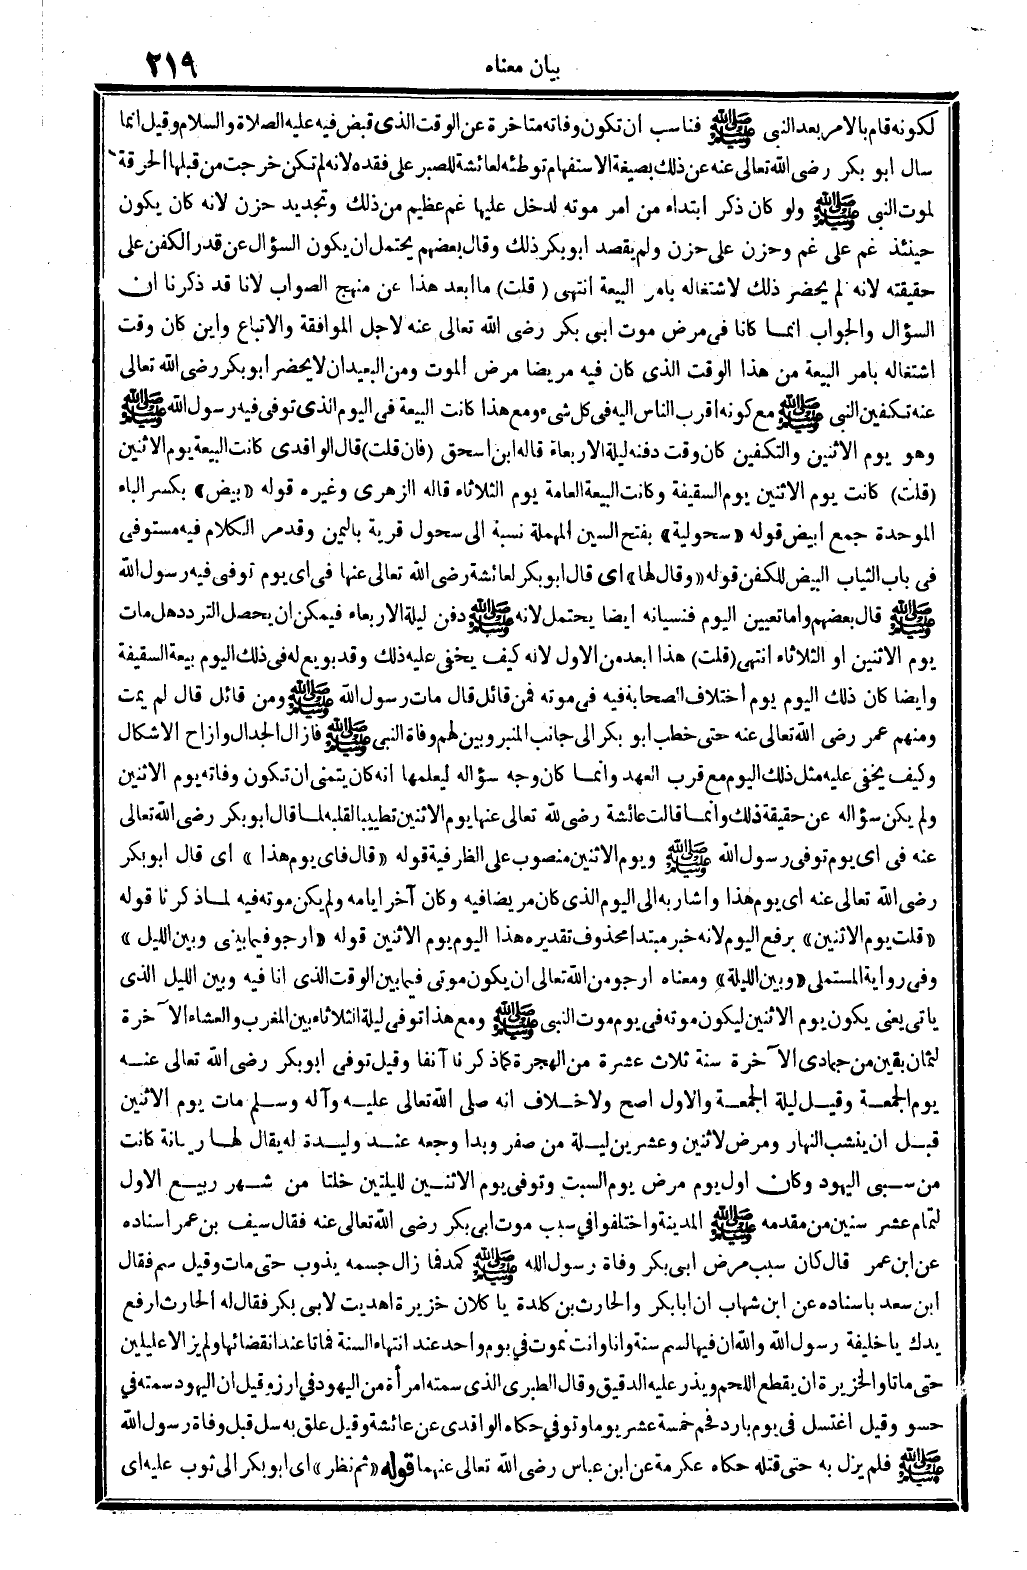 بيان معناه ٢١٩
لكونه قام بالامر بعد النبى ﷺ فناسب ان تكون وفاته متاخرة عن الوقت الذى قبض فيه عليه الصلاة والسلام وقيل انما
سال ابو بكر رضى الله تعالى عنه عن ذلك بصيغة الاستفهام توطئه لعائشة للصبر على فقده لانه لم تكن خرجت من قبلها الحرقة
لموت النبى ﷺ ولو كان ذكر ابتداء من امر موته لدخل عليها غم عظيم من ذلك وتجديد حزن لانه كان يكون
حينئذ غم على غم وحزن على حزن ولم يقصد ابو بكر ذلك وقال بعضهم يحتمل ان يكون السؤال عن قدر الكفن على
حقيقته لانه لم يحضر ذلك لاشتغاله بامر البيعة انتهى (قلت) ما ابعد هذا عن منهج الصواب لانا قد ذكرنا ان
السؤال والجواب انما كانا فى مرض موت ابى بكر رضى الله تعالى عنه لاجل الموافقة والاتباع واين كان وقت
اشتغاله بامر البيعة من هذا الوقت الذى كان فيه مريضا مرض الموت ومن البعيد ان لا يحضر ابو بكر رضى الله تعالى
عنه تكفين النبى ﷺ مع كونه اقرب الناس اليه فى كل شىء ومع هذا كانت البيعة فى اليوم الذى توفى فيه رسول الله ﷺ
وهو يوم الاثنين والتكفين كان وقت دفنه ليلة الاربعاء قاله ابن اسحق (فان قلت) قال الواقدى كانت البيعة يوم الاثنين
(قلت) كانت يوم الاثنين يوم السقيفة وكانت البيعة العامة يوم الثلاثاء قاله االزهرى وغيره قوله «بيض» بكسر الباء
الموحدة جمع ابيض قوله «سحولية» بفتح السين المهملة نسبة الى سحول قرية باليمن وقد مر الكلام فيه مستوفى
فى باب الثياب البيض للكفن قوله «وقال لها» اى قال ابو بكر لعائشة رضى الله تعالى عنها فى اى يوم توفى فيه رسول الله
ﷺ قال بعضهم واما تعيين اليوم فنسيانه ايضا يحتمل لانه ﷺ دفن ليلة الاربعاء فيمكن ان يحصل التردد هل مات
يوم الاثنين او الثلاثاء انتهى (قلت) هذا ابعد من الاول لانه كيف يخفى عليه ذلك وقد بويع له فى ذلك اليوم بيعة السقيفة
وايضا كان ذلك اليوم يوم اختلاف الصحابة فيه فى موته فمن قائل قال مات رسول الله ﷺ ومن قائل قال لم يمت
ومنهم عمر رضى الله تعالى عنه حتى خطب ابو بكر الى جانب المنبر وبين لهم وفاة النبى ﷺ فازال الجدال وازاح الاشكال
وكيف يخفى عليه مثل ذلك اليوم مع قرب العهد وانما كان وجه سؤاله ليعلمها انه كان يتمنى ان تكون وفاته يوم الاثنين
ولم يكن سؤاله عن حقيقة ذلك وانما قالت عائشة رضى لله تعالى عنها يوم الاثنين تطييبا لقلبه لما قال ابو بكر رضى الله تعالى
عنه فى اى يوم توفى رسول الله ﷺ ويوم الاثنين منصوب على الظرفية قوله «قال فاى يوم هذا» اى قال ابو بكر
رضى الله تعالى عنه اى يوم هذا واشار به الى اليوم الذى كان مريضا فيه وكان آخر ايامه ولم يكن موته فيه لماذكرنا قوله
«قلت يوم الاثنين» برفع اليوم لانه خبر مبتدا محذوف تقديره هذا اليوم يوم الاثنين قوله «ارجو فيما بينى وبين الليل»
وفى رواية المستملى «وبين الليلة» ومعناه ارجو من الله تعالى ان يكون موتى فيما بين الوقت الذى انا فيه وبين الليل الذى
ياتى يعنى يكون يوم الاثنين ليكون موته فى يوم موت النبى ﷺ ومع هذا توفى ليلة الثلاثاء بين المغرب والعشاء الآخرة
لثمان بقين من جمادى الآخرة سنة ثلاث عشرة من الهجرة كما ذكرنا آنفا وقيل توفى ابو بكر رضى الله تعالى عنه
يوم الجمعة وقيل ليلة الجمعة والاول اصح ولا خلاف انه صلى الله تعالى عليه وآله وسلم مات يوم الاثنين
قبل ان ينشب النهار ومرض لاثنين وعشرين ليلة من صفر وبدا وجعه عند وليدة له يقال لها ريانة كانت
من سبى اليهود وكان اول يوم مرض يوم السبت وتوفى يوم الاثنين لليلتين خلتا من شهر ربيع الاول
لتمام عشر سنين من مقدمه ﷺ المدينة واختلفوا في سبب موت ابى بكر رضى الله تعالى عنه فقال سيف بن عمر اسناده
عن ابن عمر قال كان سبب مرض ابى بكر وفاة رسول الله ﷺ كمد فما زال جسمه يذوب حتى مات وقيل سم فقال
ابن سعد باسناده عن ابن شهاب ان ابا بكر والحارث بن كلدة يا كلان خزيرة اهديت لابى بكر فقال له الحارث ارفع
يدك يا خليفة رسول الله والله ان فيها لسم سنة وانا وانت نموت في يوم واحد عند انتهاء السنة فماتا عند انقضائها ولم يزالا عليلين
حتى ماتا والخزيرة ان يقطع اللحم ويذر عليه الدقيق وقال الطبرى الذى سمته امرأة من اليهود في ارز وقيل ان اليهود سمته في
حسو وقيل اغتسل فى يوم بارد فحم خمسة عشر يوما وتوفي حكاه الواقدى عن عائشة وقيل علق به سل قبل وفاة رسول الله
ﷺ فلم يزل به حتى قتله حكاه عكرمة عن ابن عباس رضى الله تعالى عنهما قوله «ثم نظر» اى ابو بكر الى ثوب عليه اى